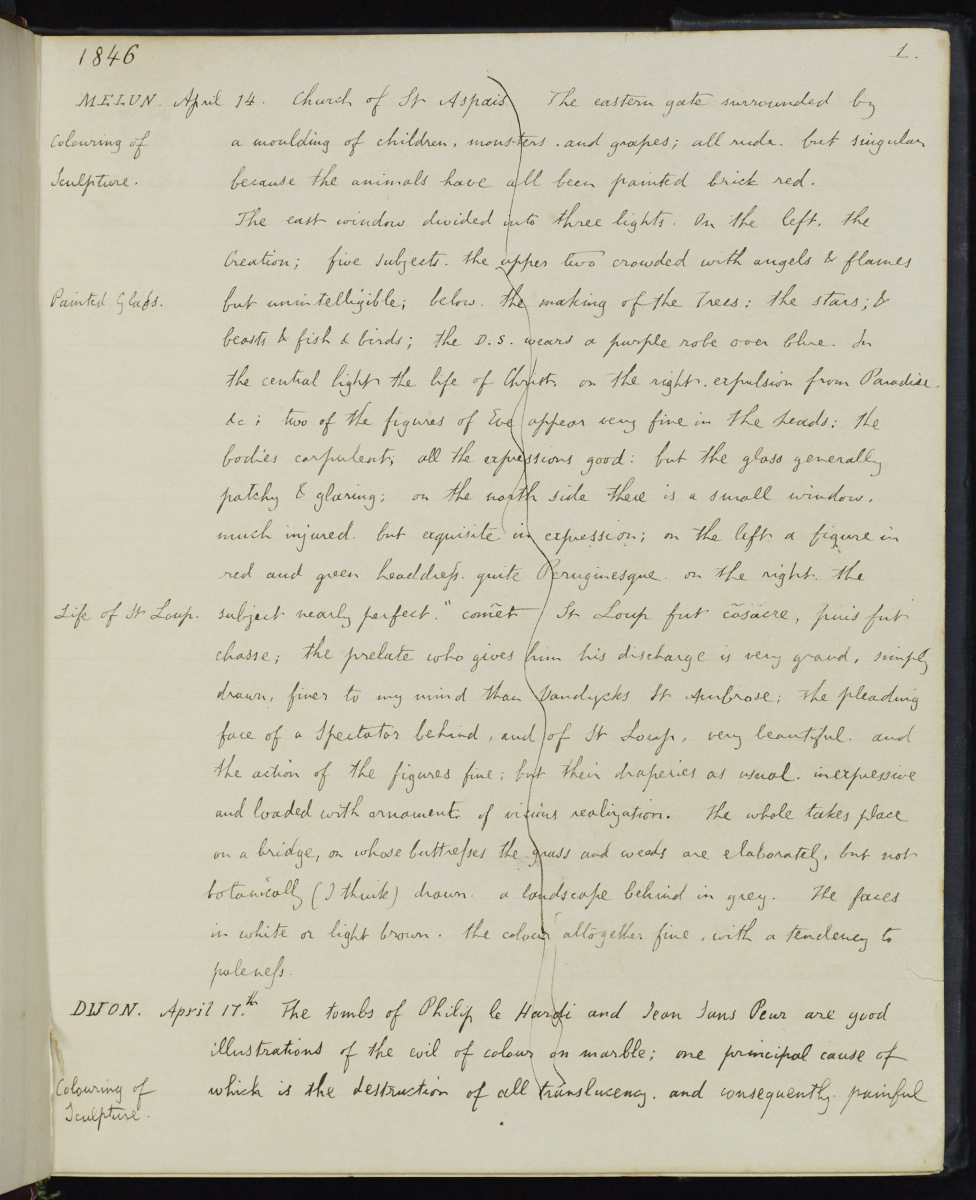 1846
1.
MELUN. April 14. Church of St Aspais The eastern gate surrounded by
Colouring of a moulding of children, monsters. and grapes; all rude. but singular
Sculpture. because the animals have all been painted brick red.
The east window divided into three lights. On the left, the
Creation; five subjects. the upper two crowded with angels & flames
Painted Glass. but unintelligible; below. the making of the Trees: the stars; &
beasts & fish & birds; the D.S. wears a purple robe over blue. In
the central light the life of Christ, on the right. expulsion from Paradise.
&c; two of the figures of Eve appear very fine in the heads: the
bodies corpulent; all the expressions good: but the glass generally
patchy & glaring; on the north side there is a small window.
much injured. but exquisite in expression; on the left a figure in
red and green headdress. quite Peruginesque. on the right. the
Life of St Loup. subject nearly perfect. " comēt St Loup fut cōsacre, puis fut
chasse; the prelate who gives him his discharge is very grand, simply
drawn, finer to my mind than Vandycks St Ambrose; the pleading
face of a Spectator behind, and of St Loup, very beautiful. and
the action of the figures fine; but their draperies as usual. inexpressive
and loaded with ornament. of vicious realization. The whole takes place
on a bridge, on whose buttresses the grass and weeds are elaborately, but not
botanically (I think) drawn. a landscape behind in grey. The faces
in white or light brown. the colour altogether fine, with a tendency to
paleness.
DIJON. April 17.th The tombs of Philip le Hardi and Jean Sans Peur are good
illustrations of the evil of colour on marble; one principal cause of
Colouring of which is the destruction of all translucency. and consequently painful
Sculpture.